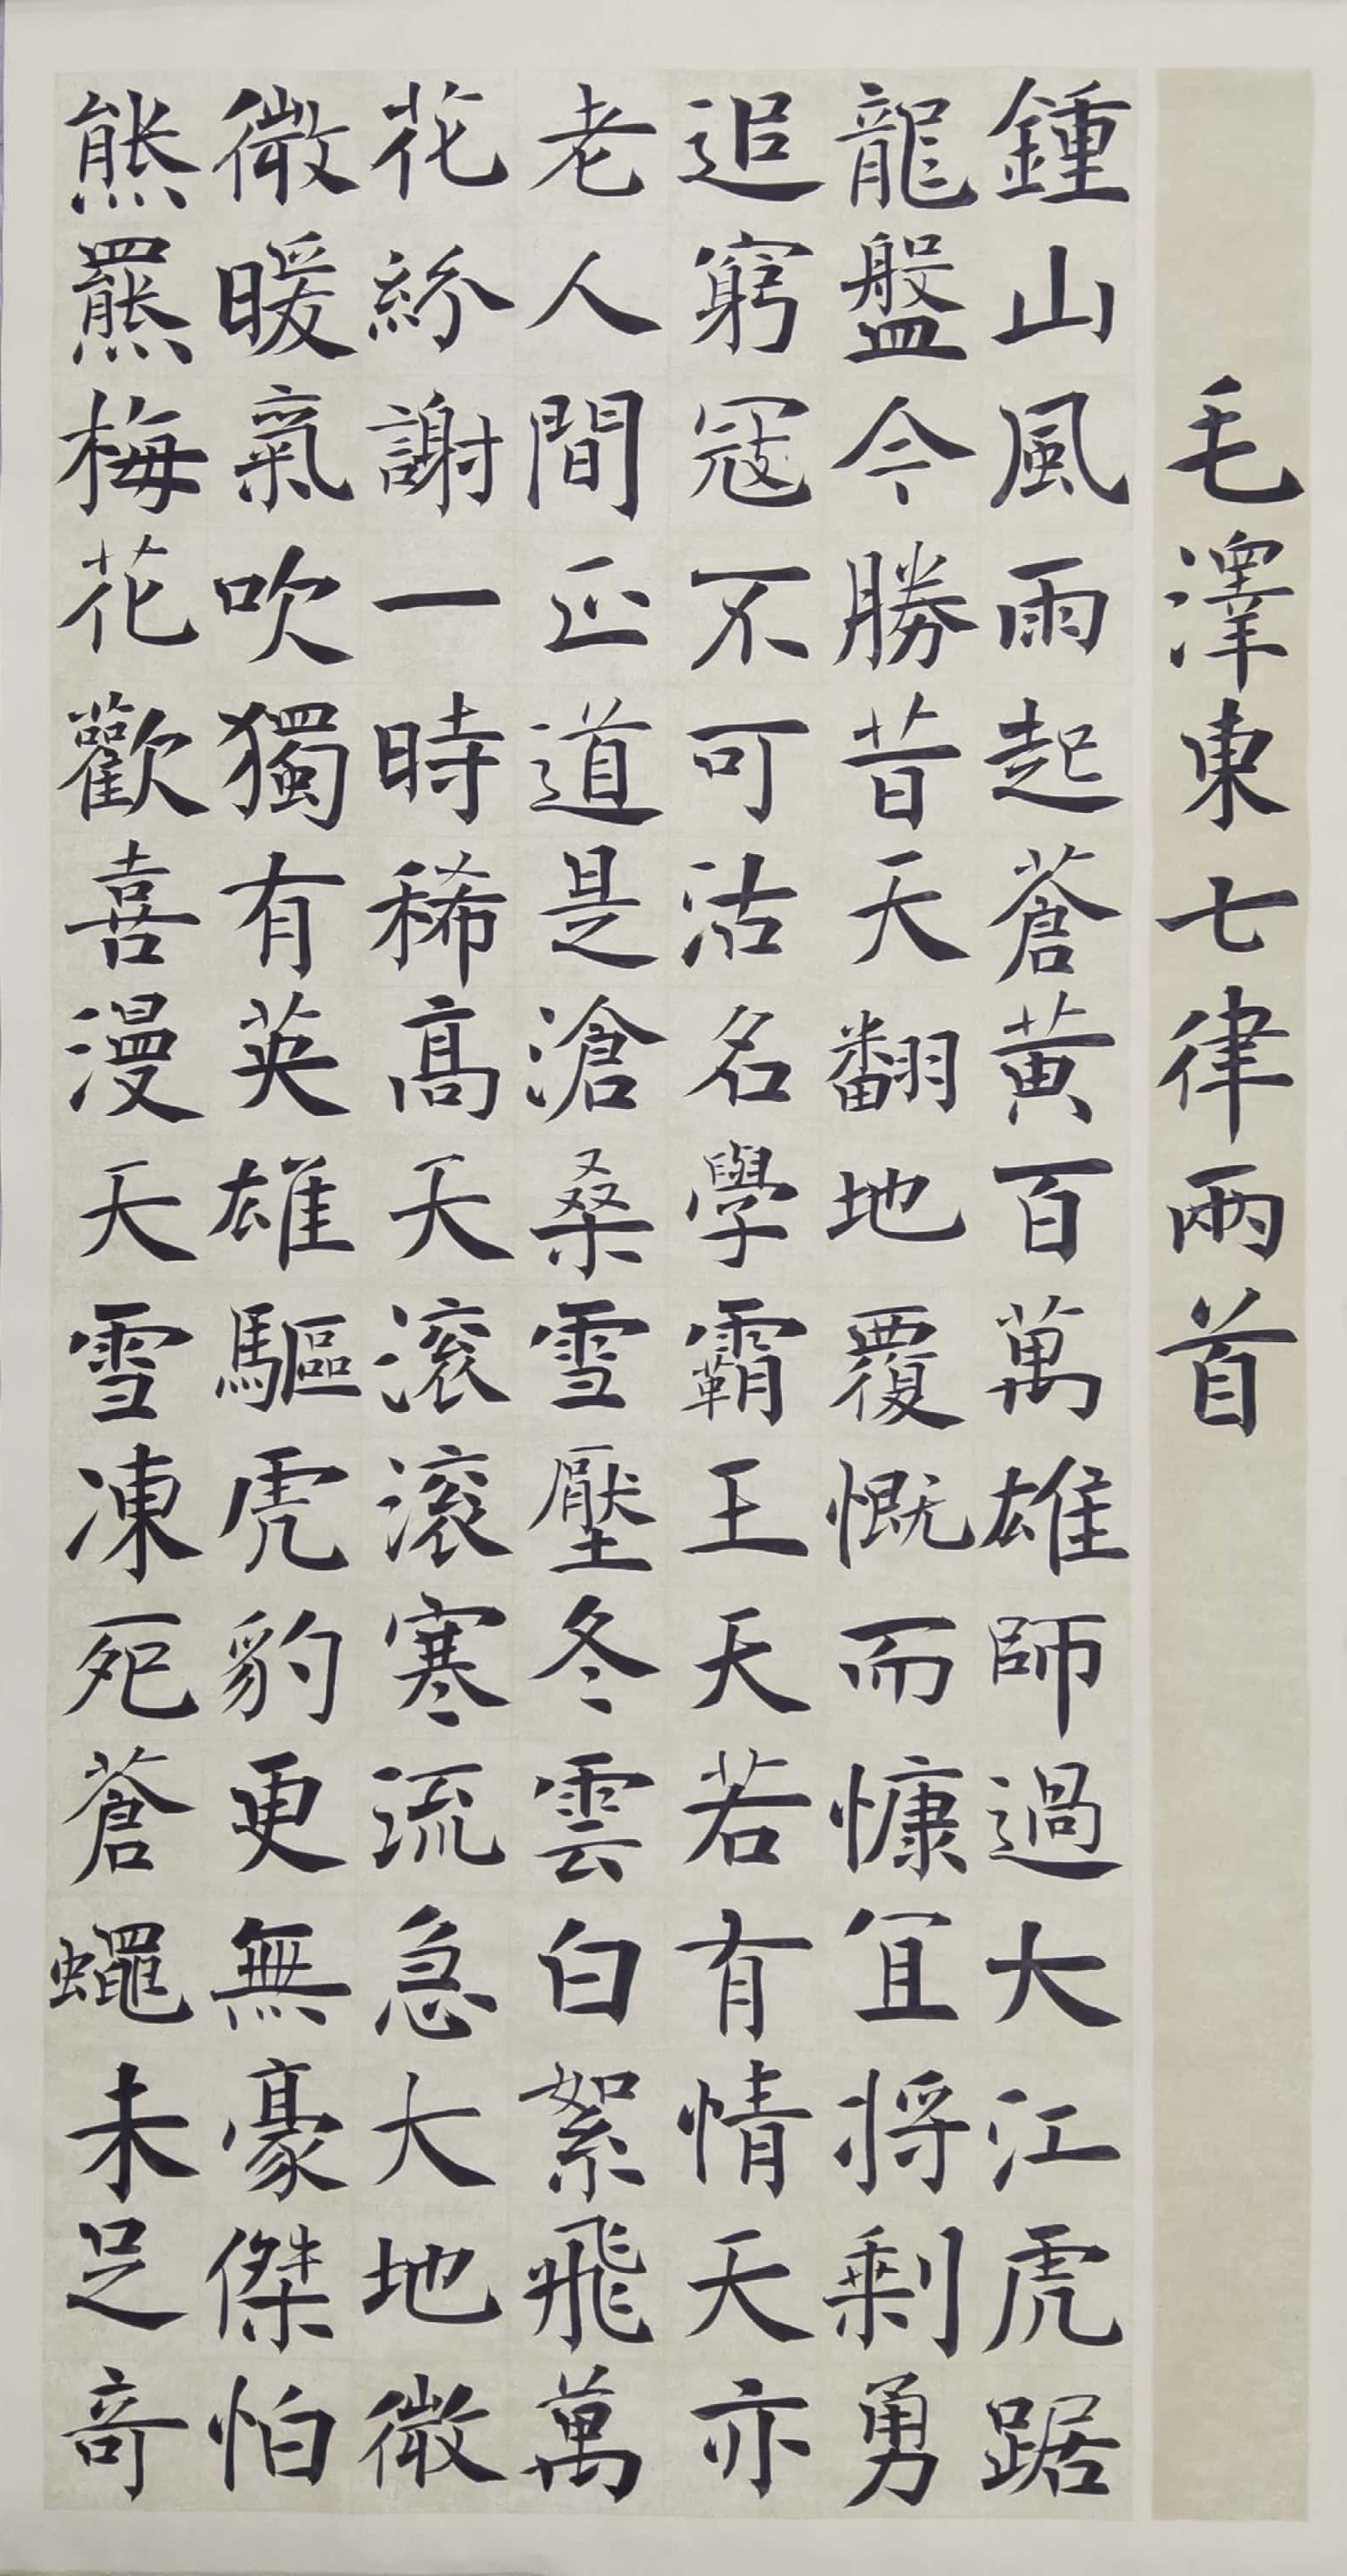 毛澤東七律兩首
鍾山風雨起蒼黃百萬雄師過大江虎踞
龍盤今勝昔天翻地覆慨而慷宜將剩勇
追窮寇不可沽名學霸王天若有情天亦
老人間正道是滄桑雪壓冬雲白絮飛萬
花紛謝一時稀高天滾滾寒流急大地微
微暖氣吹獨有英雄驅虎豹更無豪傑怕
熊羆梅花歡喜漫天雪凍死蒼蠅未足奇